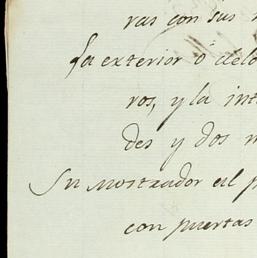 ras con sus
La exterior ò delo
ros, y la int
des y dos
Su mostrador en el p
con puertas